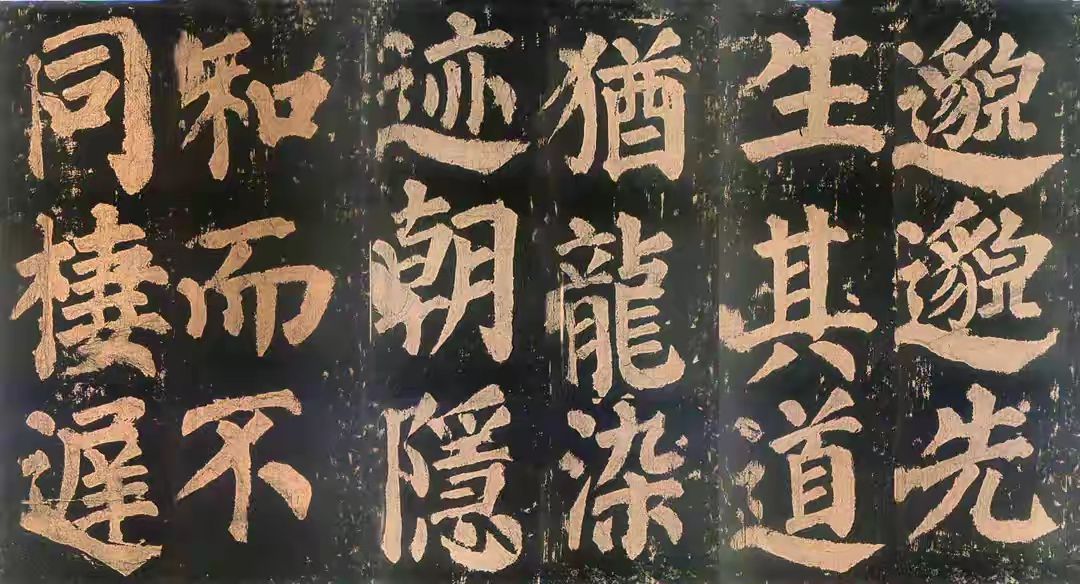 邈邈先
生其道
猶龍染
迹朝隱
和而不
同棲遲